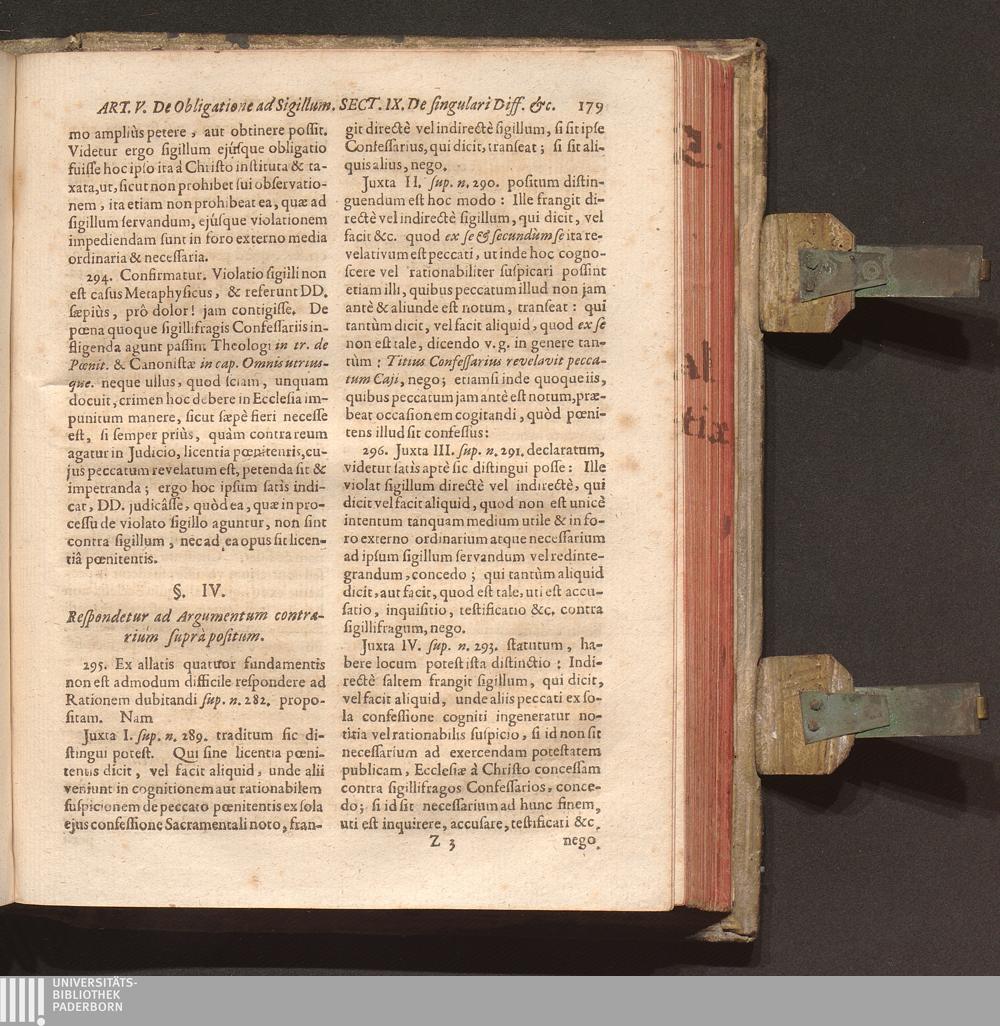 ART. V. De Obligatione ad Sigillum. SECT. IX. De ſingulari Diff. &c. 179
mo ampliùs petere, aut obtinere poſſit.
Videtur ergo ſigillum ejúſque obligatio
fuiſſe hoc ipſo ita â Chriſto inſtituta & ta-
xata, ut, ſicut non prohibet ſui obſervatio-
nem, ita etiam non prohibeat ea, quæ ad
ſigillum ſervandum, ejúſque violationem
impediendam ſunt in foro externo media
ordinaria & neceſſaria.
294. Confirmatur. Violatio ſigilli non
eſt caſus Metaphyſicus, & referunt DD.
ſæpiùs, prô dolor! jam contigiſſe. De
pœna quoque ſigillifragis Confeſſariis in-
fligenda agunt paſſim Theologi in tr. de
Pœnit. & Canoniſtæ in cap. Omnis utrius-
que. neque ullus, quod ſciam, unquam
docuit, crimen hoc debere in Eccleſia im-
punitum manere, ſicut ſæpè fieri neceſſe
eſt, ſi ſemper priùs, quàm contra reum
agatur in Judicio, licentia pœnitentis, cu-
jus peccatum revelatum eſt, petenda ſit &
impetranda; ergo hoc ipſum ſatìs indi-
cat, DD. judicâſſe, quòd ea, quæ in pro-
ceſſu de violato ſigillo aguntur, non ſint
contra ſigillum, nec ad ea opus ſit licen-
tiâ pœnitentis.
§. IV.
Reſpondetur ad Argumentum contra-
rium ſuprà poſitum.
295. Ex allatis quatuor fundamentis
non eſt admodum difficile reſpondere ad
Rationem dubitandi ſup. n. 282. propo-
ſitam. Nam
Juxta I. ſup. n. 289. traditum ſic di-
ſtingui poteſt. Qui ſine licentia pœni-
tentis dicit, vel facit aliquid, unde alii
veniunt in cognitionem aut rationabilem
ſuſpicionem de peccato pœnitentis ex ſola
ejus confeſſione Sacramentali noto, fran-
git directè vel indirectè ſigillum, ſi ſit ipſe
Confeſſarius, qui dicit, tranſeat; ſi ſit ali-
quis alius, nego.
Juxta II. ſup. n. 290. poſitum diſtin-
guendum eſt hoc modo: Ille frangit di-
rectè vel indirectè ſigillum, qui dicit, vel
facit &c. quod ex ſe & ſecundùm ſe ita re-
velativum eſt peccati, ut inde hoc cogno-
ſcere vel rationabiliter ſuſpicari poſſint
etiam illi, quibus peccatum illud non jam
antè & aliunde eſt notum, tranſeat: qui
tantùm dicit, vel facit aliquid, quod ex ſe
non eſt tale, dicendo v. g. in genere tan-
tùm: Titius Confeſſarius revelavit pecca-
tum Caji, nego; etiamſi inde quoque iis,
quibus peccatum jam antè eſt notum, præ-
beat occaſionem cogitandi, quòd pœni-
tens illud ſit confeſſus:
296. Juxta III. ſup. n. 291. declaratum,
videtur ſatìs aptè ſic diſtingui poſſe: Ille
violat ſigillum directè vel indirectè, qui
dicit vel facit aliquid, quod non eſt unicè
intentum tanquam medium utile & in fo-
ro externo ordinarium atque neceſſarium
ad ipſum ſigillum ſervandum vel redinte-
grandum, concedo; qui tantùm aliquid
dicit, aut facit, quod eſt tale, uti eſt accu-
ſatio, inquiſitio, teſtificatio &c. contra
ſigillifragum, nego.
Juxta IV. ſup. n. 293. ſtatutum, ha-
bere locum poteſt iſta diſtinctio: Indi-
rectè ſaltem frangit ſigillum, qui dicit,
vel facit aliquid, unde aliis peccati ex ſo-
la confeſſione cogniti ingeneratur no-
titia vel rationabilis ſuſpicio, ſi id non ſit
neceſſarium ad exercendam poteſtatem
publicam, Eccleſiæ à Chriſto conceſſam
contra ſigillifragos Confeſſarios, conce-
do; ſi id ſit neceſſarium ad hunc finem,
uti eſt inquirere, accuſare, teſtificari &c.
Z 3 nego.
UNIVERSITÄTS-
BIBLIOTHEK
PADERBORN